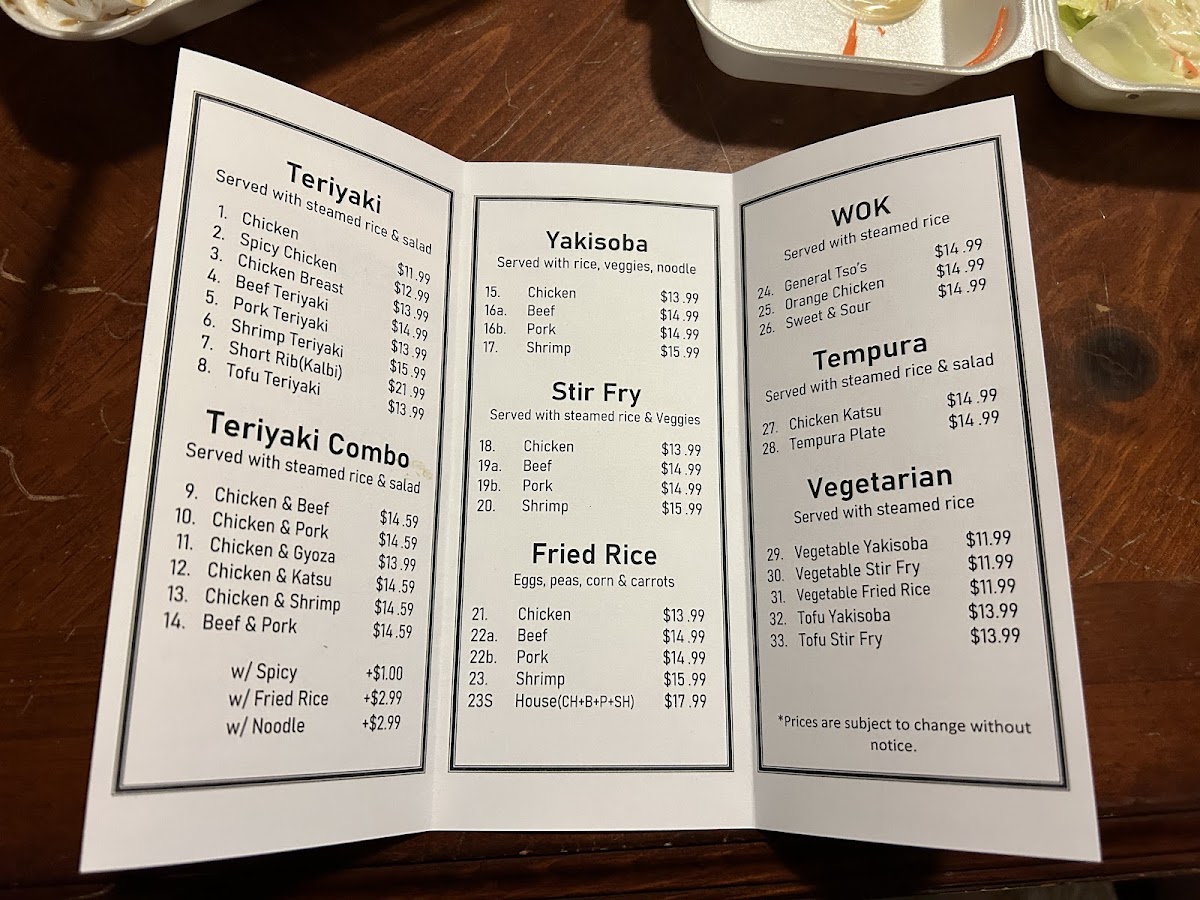 Teriyaki
Served with steamed rice & salad
1. Chicken $11.99
2. Spicy Chicken $12.99
3. Chicken Breast $13.99
4. Beef Teriyaki $14.99
5. Pork Teriyaki $13.99
6. Shrimp Teriyaki $15.99
7. Short Rib(Kalbi) $21.99
8. Tofu Teriyaki $13.99
Teriyaki Combo
Served with steamed rice & salad
9. Chicken & Beef $14.59
10. Chicken & Pork $14.59
11. Chicken & Gyoza $13.99
12. Chicken & Katsu $14.59
13. Chicken & Shrimp $14.59
14. Beef & Pork $14.59
w/ Spicy +$1.00
w/ Fried Rice +$2.99
w/ Noodle +$2.99
Yakisoba
Served with rice, veggies, noodle
15. Chicken $13.99
16a. Beef $14.99
16b. Pork $14.99
17. Shrimp $15.99
Stir Fry
Served with steamed rice & Veggies
18. Chicken $13.99
19a. Beef $14.99
19b. Pork $14.99
20. Shrimp $15.99
Fried Rice
Eggs, peas, corn & carrots
21. Chicken $13.99
22a. Beef $14.99
22b. Pork $14.99
23. Shrimp $15.99
23S House(CH+B+P+SH) $17.99
WOK
Served with steamed rice
24. General Tso's $14.99
25. Orange Chicken $14.99
26. Sweet & Sour $14.99
Tempura
Served with steamed rice & salad
27. Chicken Katsu $14.99
28. Tempura Plate $14.99
Vegetarian
Served with steamed rice
29. Vegetable Yakisoba $11.99
30. Vegetable Stir Fry $11.99
31. Vegetable Fried Rice $11.99
32. Tofu Yakisoba $13.99
33. Tofu Stir Fry $13.99
*Prices are subject to change without
notice.